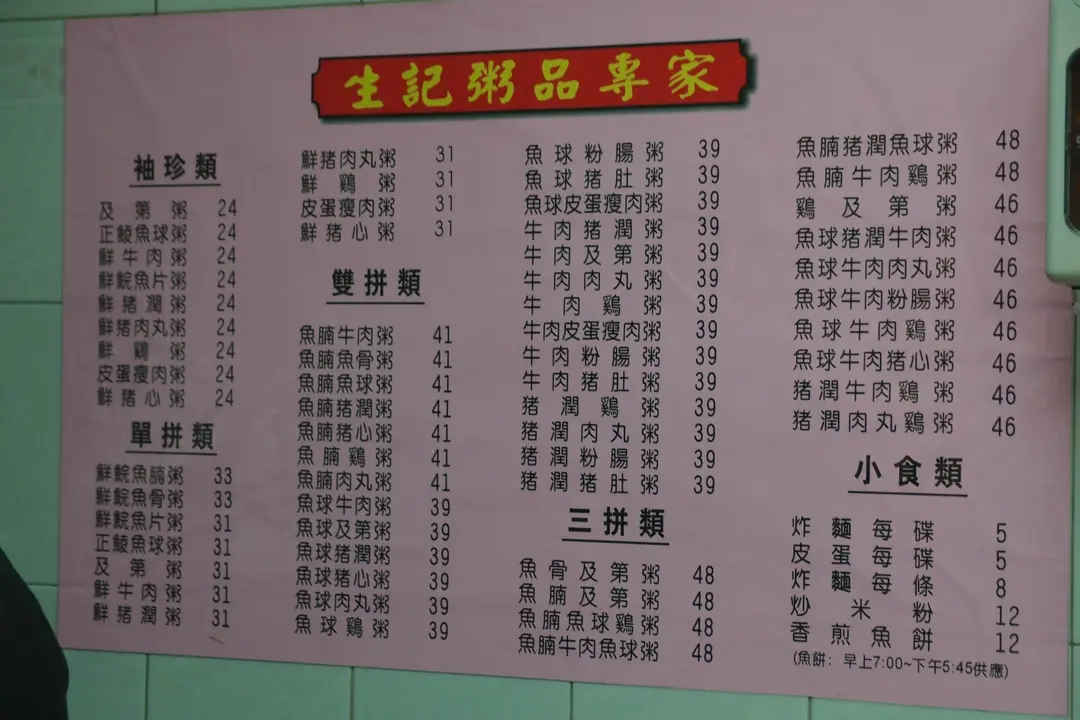 生記粥品專家
袖珍類
及第粥 24
正鯪魚球粥 24
鮮牛肉粥 24
鮮鯇魚片粥 24
鮮猪潤粥 24
鮮猪肉丸粥 24
鮮鷄粥 24
皮蛋瘦肉粥 24
鮮猪心粥 24
單拼類
鮮鯇魚腩粥 33
鮮鯇魚骨粥 33
鮮鯇魚片粥 31
正鯪魚球粥 31
及第粥 31
鮮牛肉粥 31
鮮猪潤粥 31
鮮猪肉丸粥 31
鮮鷄粥 31
皮蛋瘦肉粥 31
鮮猪心粥 31
雙拼類
魚腩牛肉粥 41
魚腩魚骨粥 41
魚腩魚球粥 41
魚腩猪潤粥 41
魚腩猪心粥 41
魚腩鷄粥 41
魚腩肉丸粥 41
魚球牛肉粥 39
魚球及第粥 39
魚球猪潤粥 39
魚球猪心粥 39
魚球肉丸粥 39
魚球鷄粥 39
魚球粉腸粥 39
魚球猪肚粥 39
魚球皮蛋瘦肉粥 39
牛肉猪潤粥 39
牛肉及第粥 39
牛肉肉丸粥 39
牛肉鷄粥 39
牛肉皮蛋瘦肉粥 39
牛肉粉腸粥 39
牛肉猪肚粥 39
猪潤鷄粥 39
猪潤肉丸粥 39
猪潤粉腸粥 39
猪潤猪肚粥 39
三拼類
魚骨及第粥 48
魚腩及第粥 48
魚腩魚球鷄粥 48
魚腩牛肉魚球粥 48
魚腩猪潤魚球粥 48
魚腩牛肉鷄粥 48
鷄及第粥 46
魚球猪潤牛肉粥 46
魚球牛肉肉丸粥 46
魚球牛肉粉腸粥 46
魚球牛肉鷄粥 46
魚球牛肉猪心粥 46
猪潤牛肉鷄粥 46
猪潤肉丸鷄粥 46
小食類
炸麵每碟 5
皮蛋每碟 5
炸麵每條 8
炒米粉 12
香煎魚餅 12
(魚餅：早上7:00~下午5:45供應)